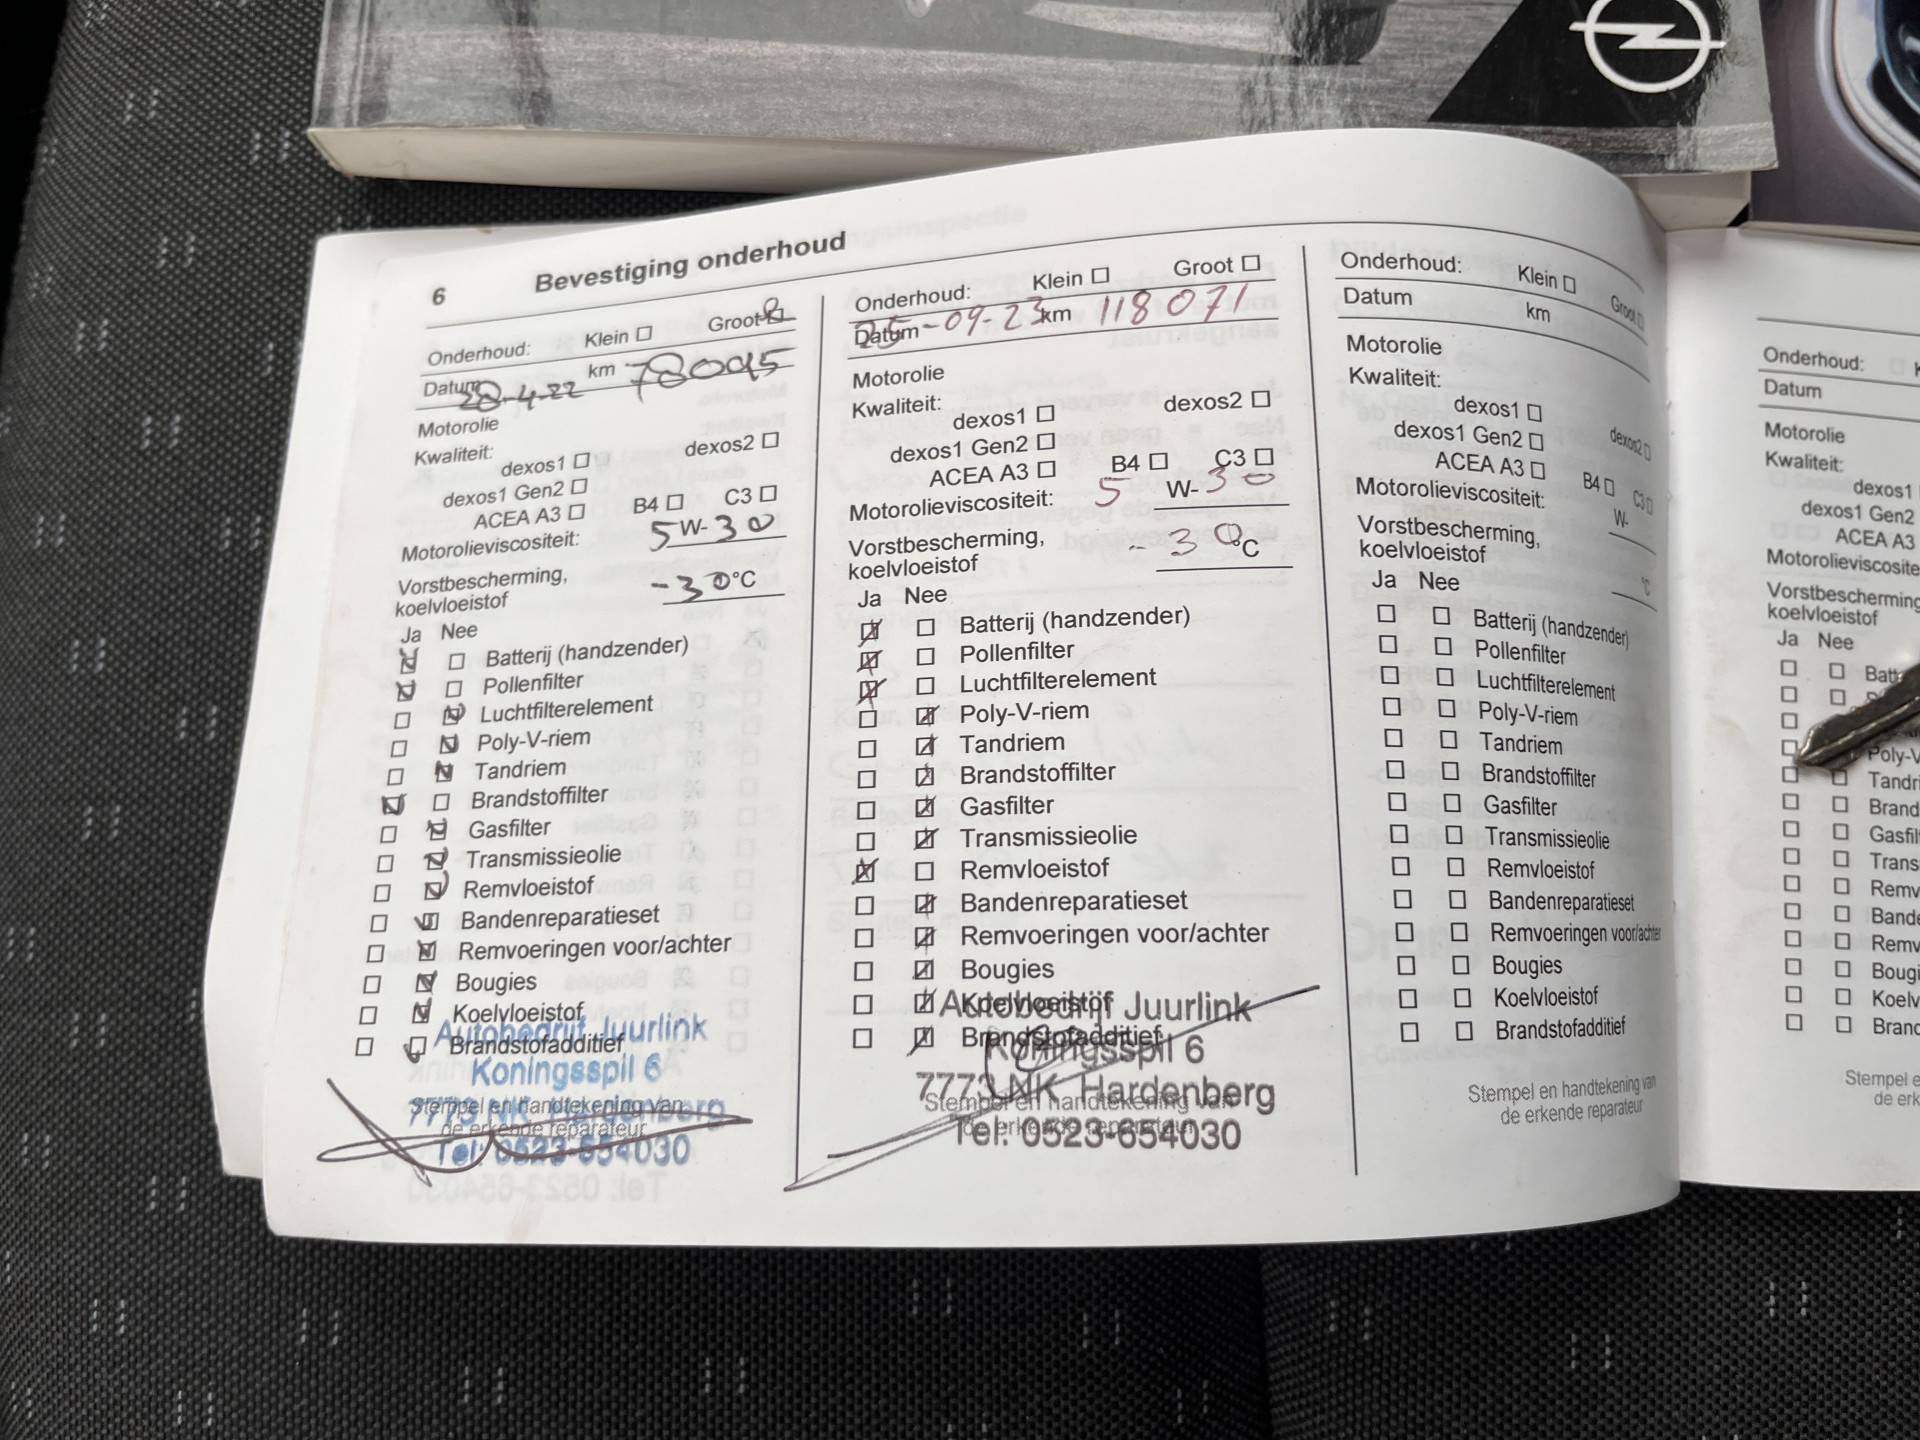 6 Bevestiging onderhoud
Onderhoud: Klein Groot
Datum 28-4-22 km 78095
Motorolie
Kwaliteit:
dexos1 dexos2
dexos1 Gen2
ACEA A3 B4 C3
Motorolieviscositeit: 5 W- 30
Vorstbescherming,
koelvloeistof -30 °C
Ja Nee
Batterij (handzender)
Pollenfilter
Luchtfilterelement
Poly-V-riem
Tandriem
Brandstoffilter
Gasfilter
Transmissieolie
Remvloeistof
Bandenreparatieset
Remvoeringen voor/achter
Bougies
Koelvloeistof
Brandstofadditief
Autobedrijf Juurlink
Koningsspil 6
7773 NK Hardenberg
Tel: 0523-654030
Stempel en handtekening van
de erkende reparateur
Onderhoud: Klein Groot
Datum 25-09-23 km 118071
Motorolie
Kwaliteit:
dexos1 dexos2
dexos1 Gen2
ACEA A3 B4 C3
Motorolieviscositeit: 5 W- 30
Vorstbescherming,
koelvloeistof - 30 °C
Ja Nee
Batterij (handzender)
Pollenfilter
Luchtfilterelement
Poly-V-riem
Tandriem
Brandstoffilter
Gasfilter
Transmissieolie
Remvloeistof
Bandenreparatieset
Remvoeringen voor/achter
Bougies
Koelvloeistof
Brandstofadditief
Autobedrijf Juurlink
Koningsspil 6
7773 NK Hardenberg
Tel: 0523-654030
Stempel en handtekening van
de erkende reparateur
Onderhoud: Klein Groot
Datum km
Motorolie
Kwaliteit:
dexos1 dexos2
dexos1 Gen2
ACEA A3 B4 C3
Motorolieviscositeit: W-
Vorstbescherming,
koelvloeistof °C
Ja Nee
Batterij (handzender)
Pollenfilter
Luchtfilterelement
Poly-V-riem
Tandriem
Brandstoffilter
Gasfilter
Transmissieolie
Remvloeistof
Bandenreparatieset
Remvoeringen voor/achter
Bougies
Koelvloeistof
Brandstofadditief
Stempel en handtekening van
de erkende reparateur
Onderhoud: K
Datum
Motorolie
Kwaliteit:
dexos1
dexos1 Gen2
ACEA A3
Motorolieviscosite
Vorstbescherming
koelvloeistof
Ja Nee
Batt
Poly-V
Tandri
Brand
Gasfil
Trans
Remv
Bande
Remv
Bougi
Koelv
Branc
Stempel e
de erk